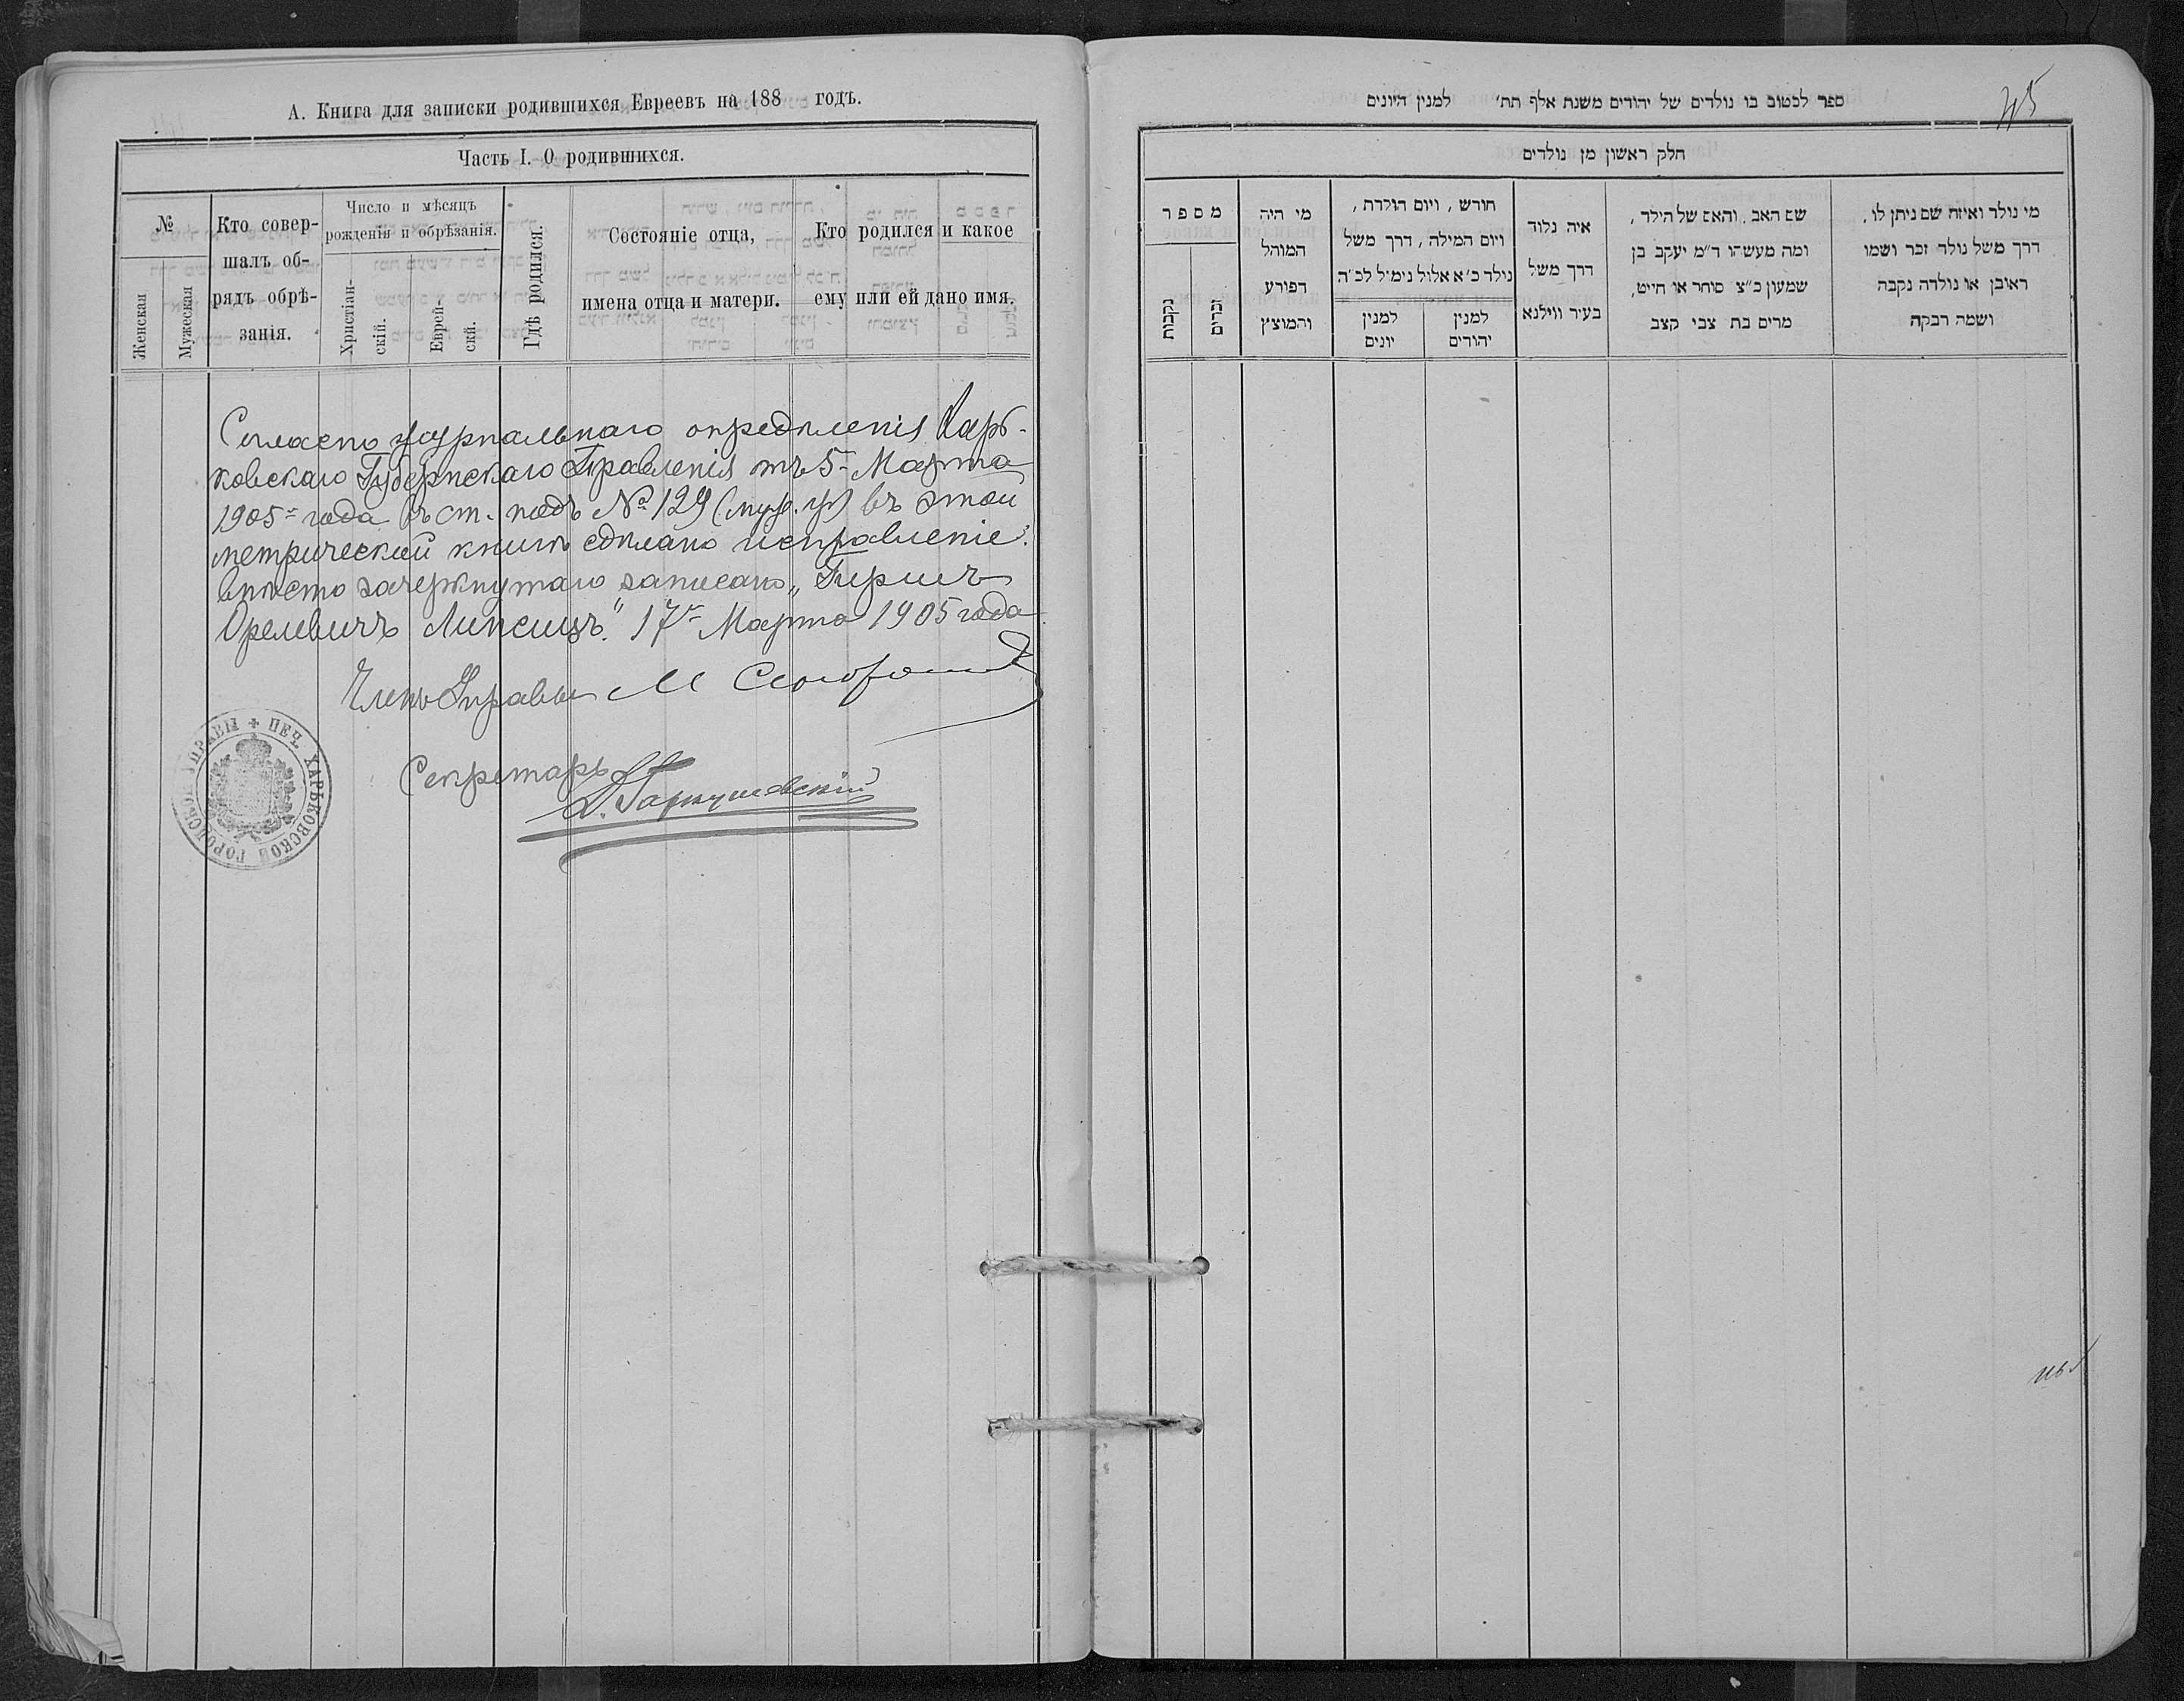 А. Книга для записки родившихся Евреевъ на 188 годъ.
Часть I. О родившихся.
№
Женская
Мужеская
Кто совер-
шалъ об-
рядъ обрѣ-
занія.
Число и мѣсяцъ
рожденія и обрѣзанія.
Христіан-
скій.
Еврей-
скій.
Гдѣ родился.
Состояніе отца,
имена отца и матери.
Кто родился и какое
ему или ей дано имя.
Согласно журнальнаго опредѣленія Харь-
ковскаго Губернскаго Правленія отъ 5 Марта
1905 года въ ст. подъ № 129 въ этой
метрической книгѣ сдѣлано исправленіе:
вмѣсто зачеркнутаго записано „Гиршъ
Орелевичъ Липсицъ." 17 Марта 1905 года
Членъ Управы М
Секретарь
ПЕЧ. ХАРЬКОВСКОЙ ГОРОДСКОЙ УПРАВЫ
ספר לכטוב בו נולדים של יהודים משנת אלף תת׳ למנין היונים
45
חלק ראשון מן נולדים
מי נולד ואיזה שם ניתן לו,
דרך משל נולד זכר ושמו
ראובן או נולדה נקבה
ושמה רבקה
שם האב, והאם של הילד,
ומה מעשהו ד״מ יעקב בן
שמעון כ״צ סוחר או חייט,
מרים בת צבי קצב
איה נלוד
דרך משל
בעיר ווילנא
חורש, ויום הולדת,
ויום המילה, דרך משל
נילד כ״א אלול נימיל לכ״ה
למנין
יהודים
למנין
יונים
מי היה
המוהל
הפירע
והמוצץ
מספר
זכרים
נקבות